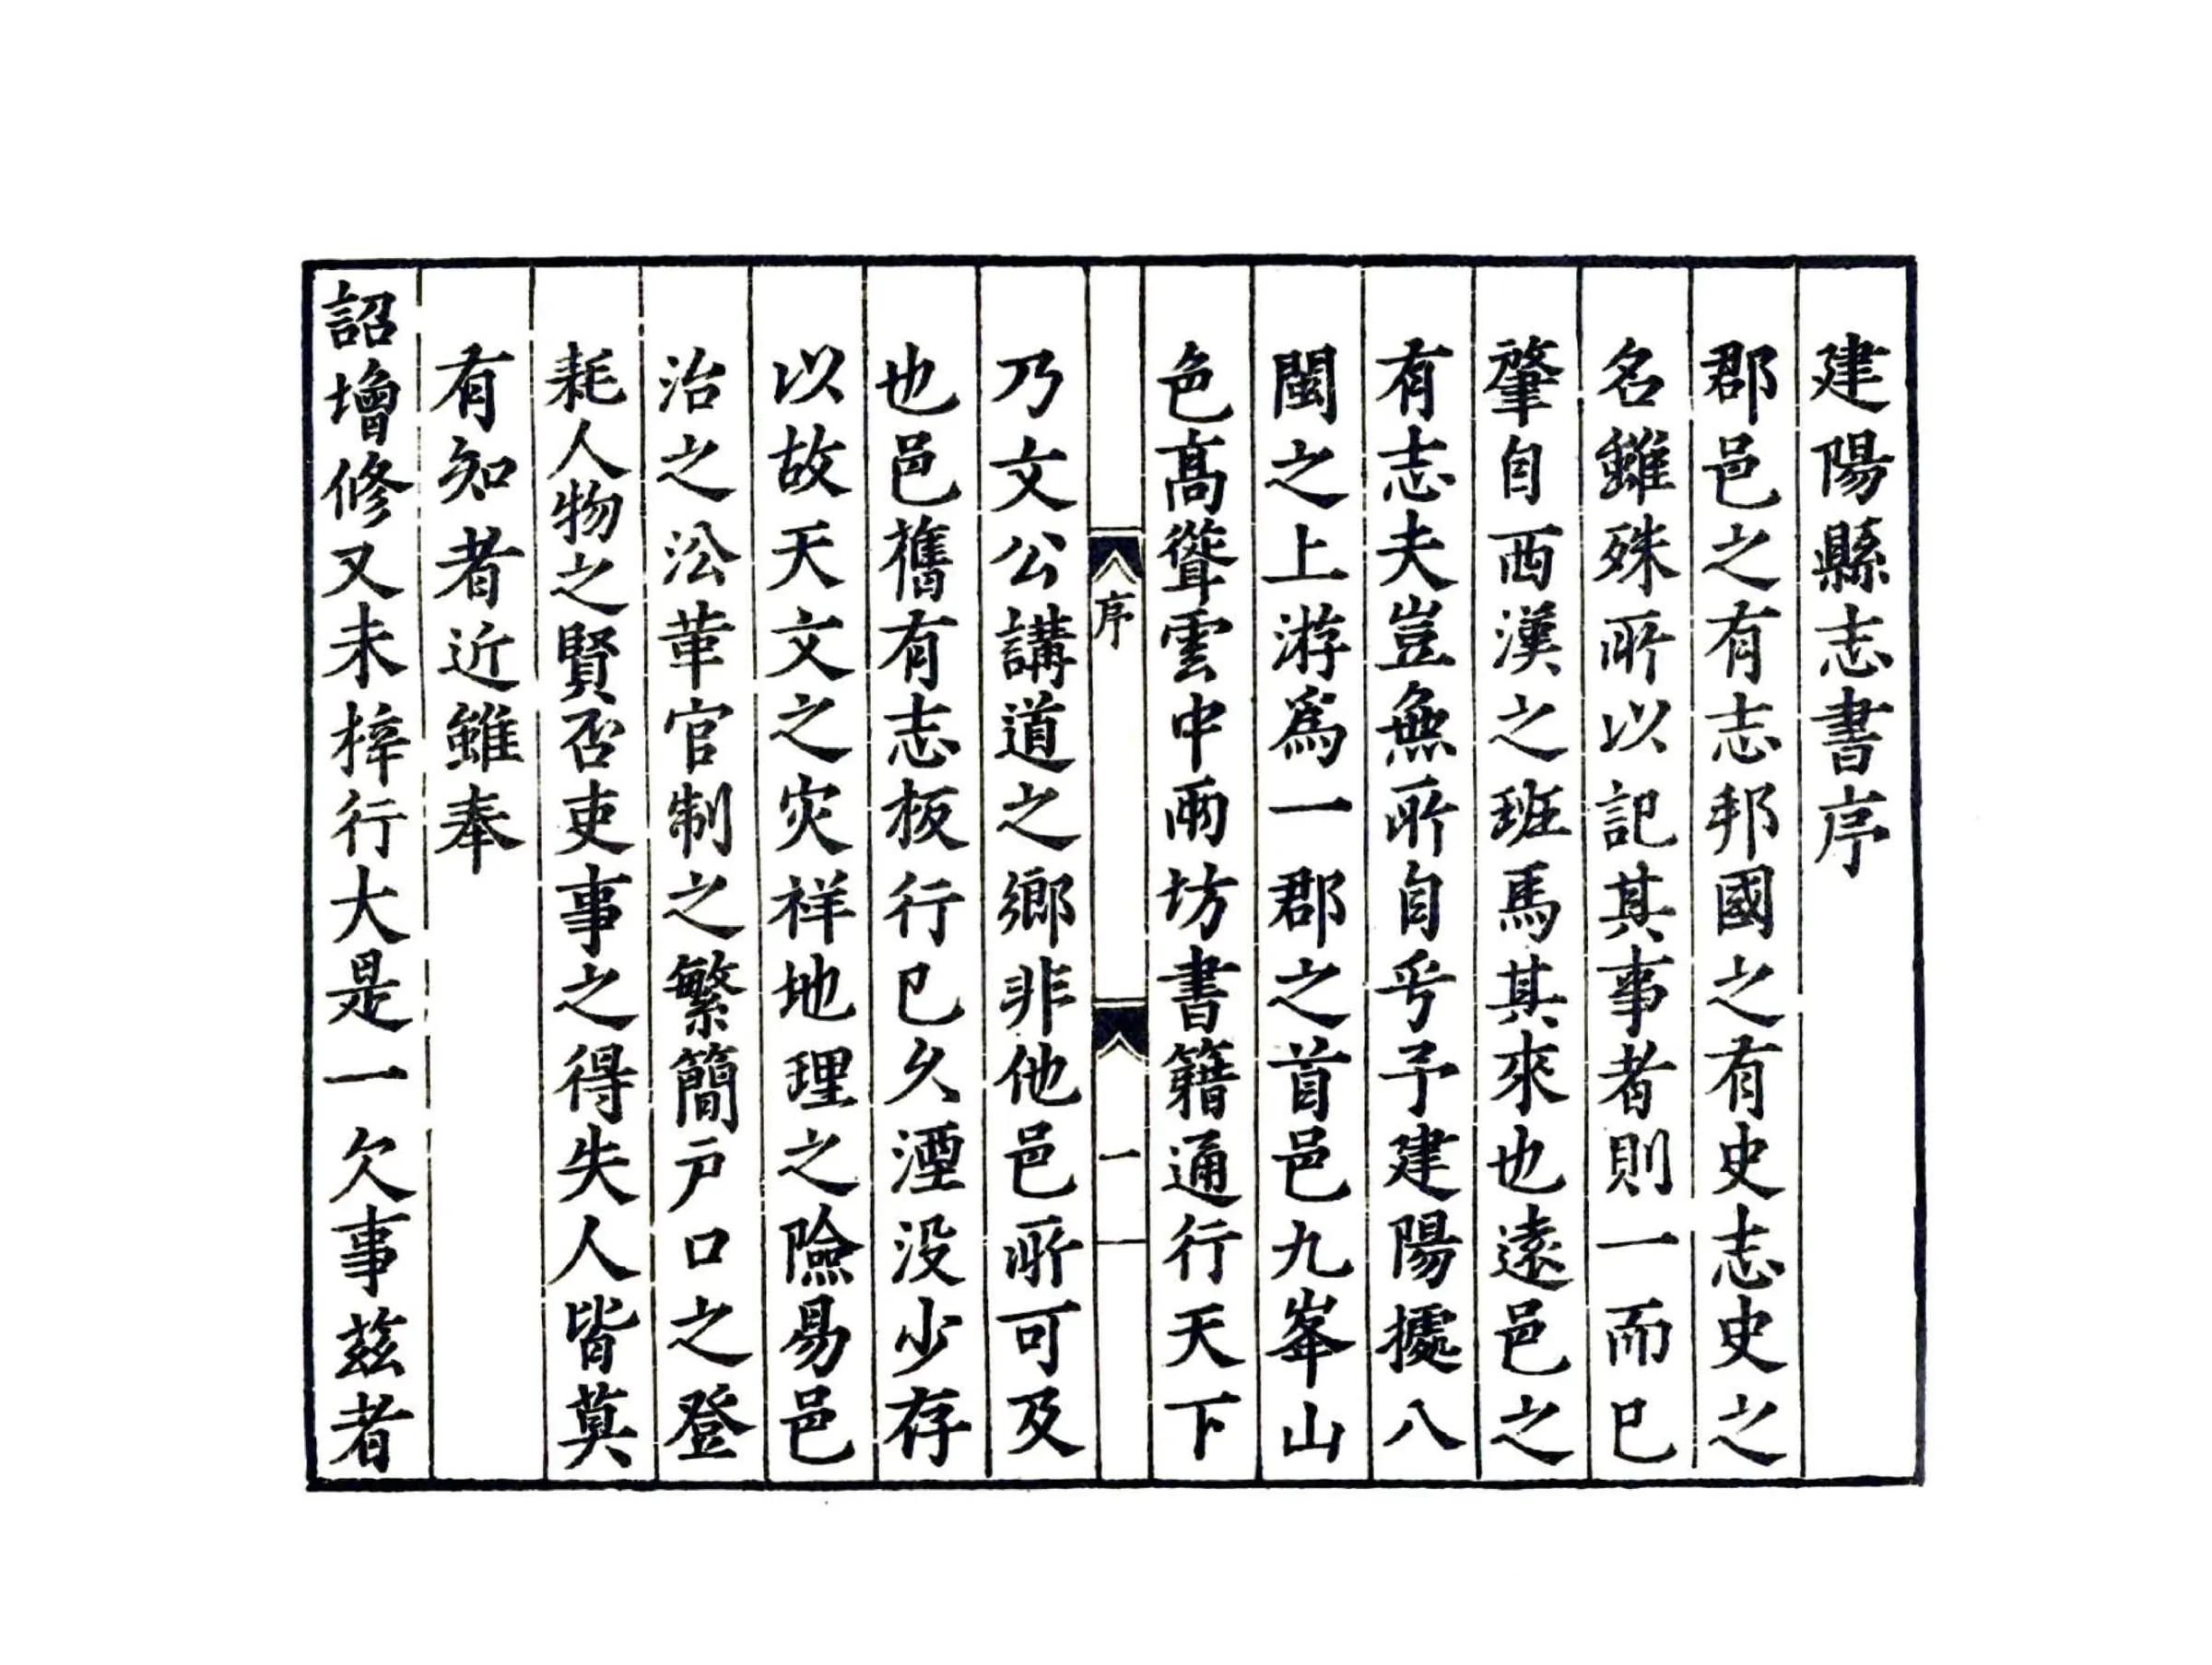 建陽縣志書序
郡邑之有志邦國之有史志史之
名雖殊所以記其事者則一而已
肇自西漢之班馬其來也遠邑之
有志夫豈無所自乎予建陽據八
閩之上游爲一郡之首邑九峯山
色高聳雲中兩坊書籍通行天下
序
一
乃文公講道之鄉非他邑所可及
也邑舊有志板行已久湮没少存
以故天文之灾祥地理之險易邑
治之㳂革官制之繁簡户口之登
耗人物之賢否吏事之得失人皆莫
有知者近雖奉
詔增修又未梓行大是一欠事兹者